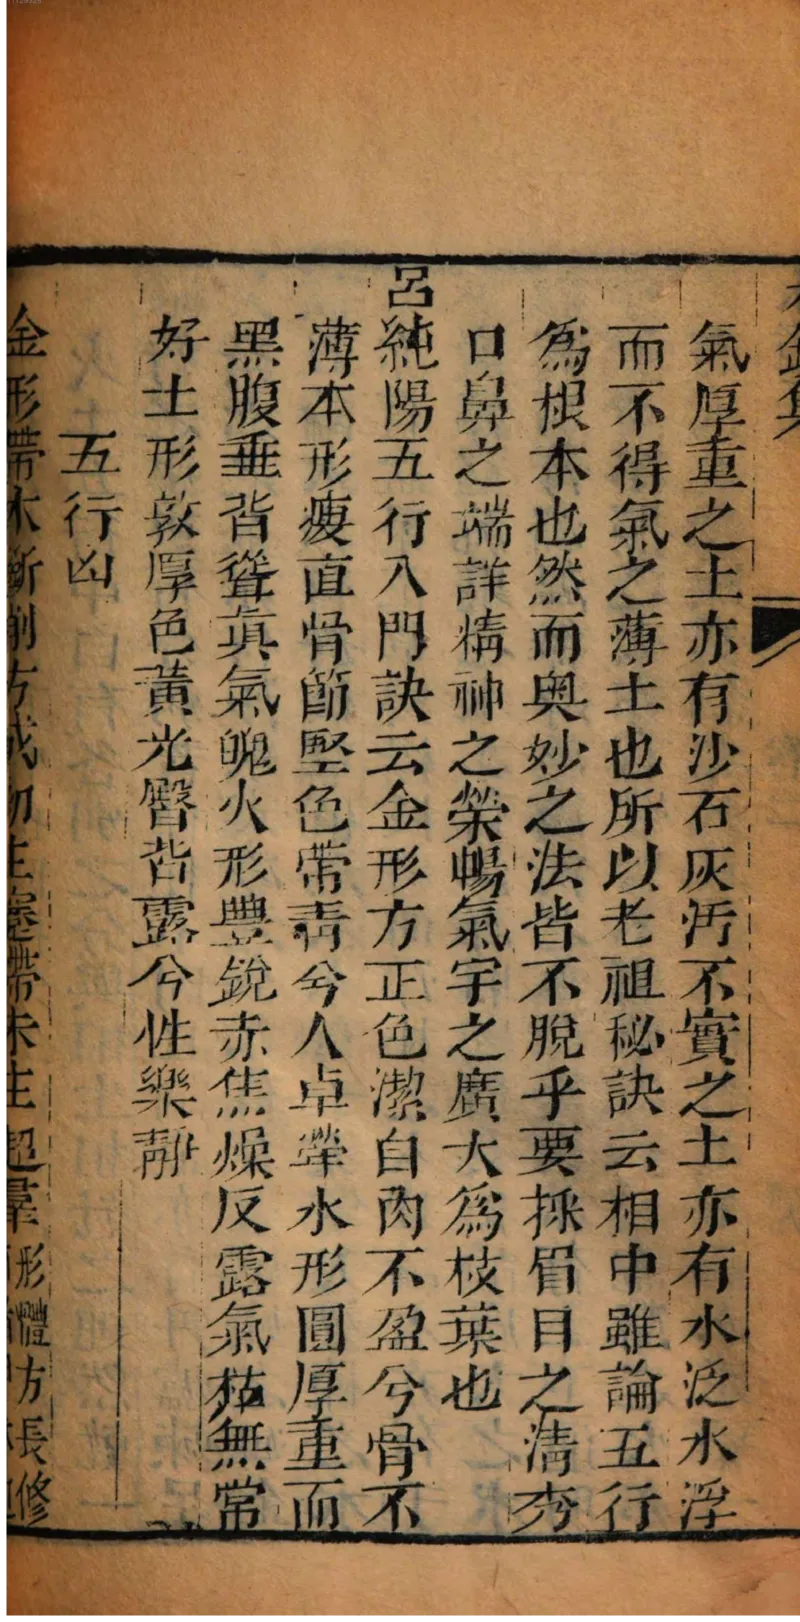 氣厚重之土亦有沙石灰汚不實之土亦有水泛水浮
而不得氣之薄土也所以老祖秘訣云相中雖論五行
爲根本也然而奥妙之法皆不脫乎要採眉目之淸秀
口鼻之端詳精神之榮暢氣宇之廣大爲枝葉也
呂純陽五行入門訣云金形方正色潔白肉不盈兮骨不
薄木形瘦直骨節堅色帶靑兮人卓犖水形圓厚重而
黑腹垂背聳眞氣魄火形豐銳赤焦燥反露氣枯無常
好土形敦厚色黃光臀背露兮性樂靜
五行凶
金形帶木斵削方成初主蹇帶末主超羣形體方長修